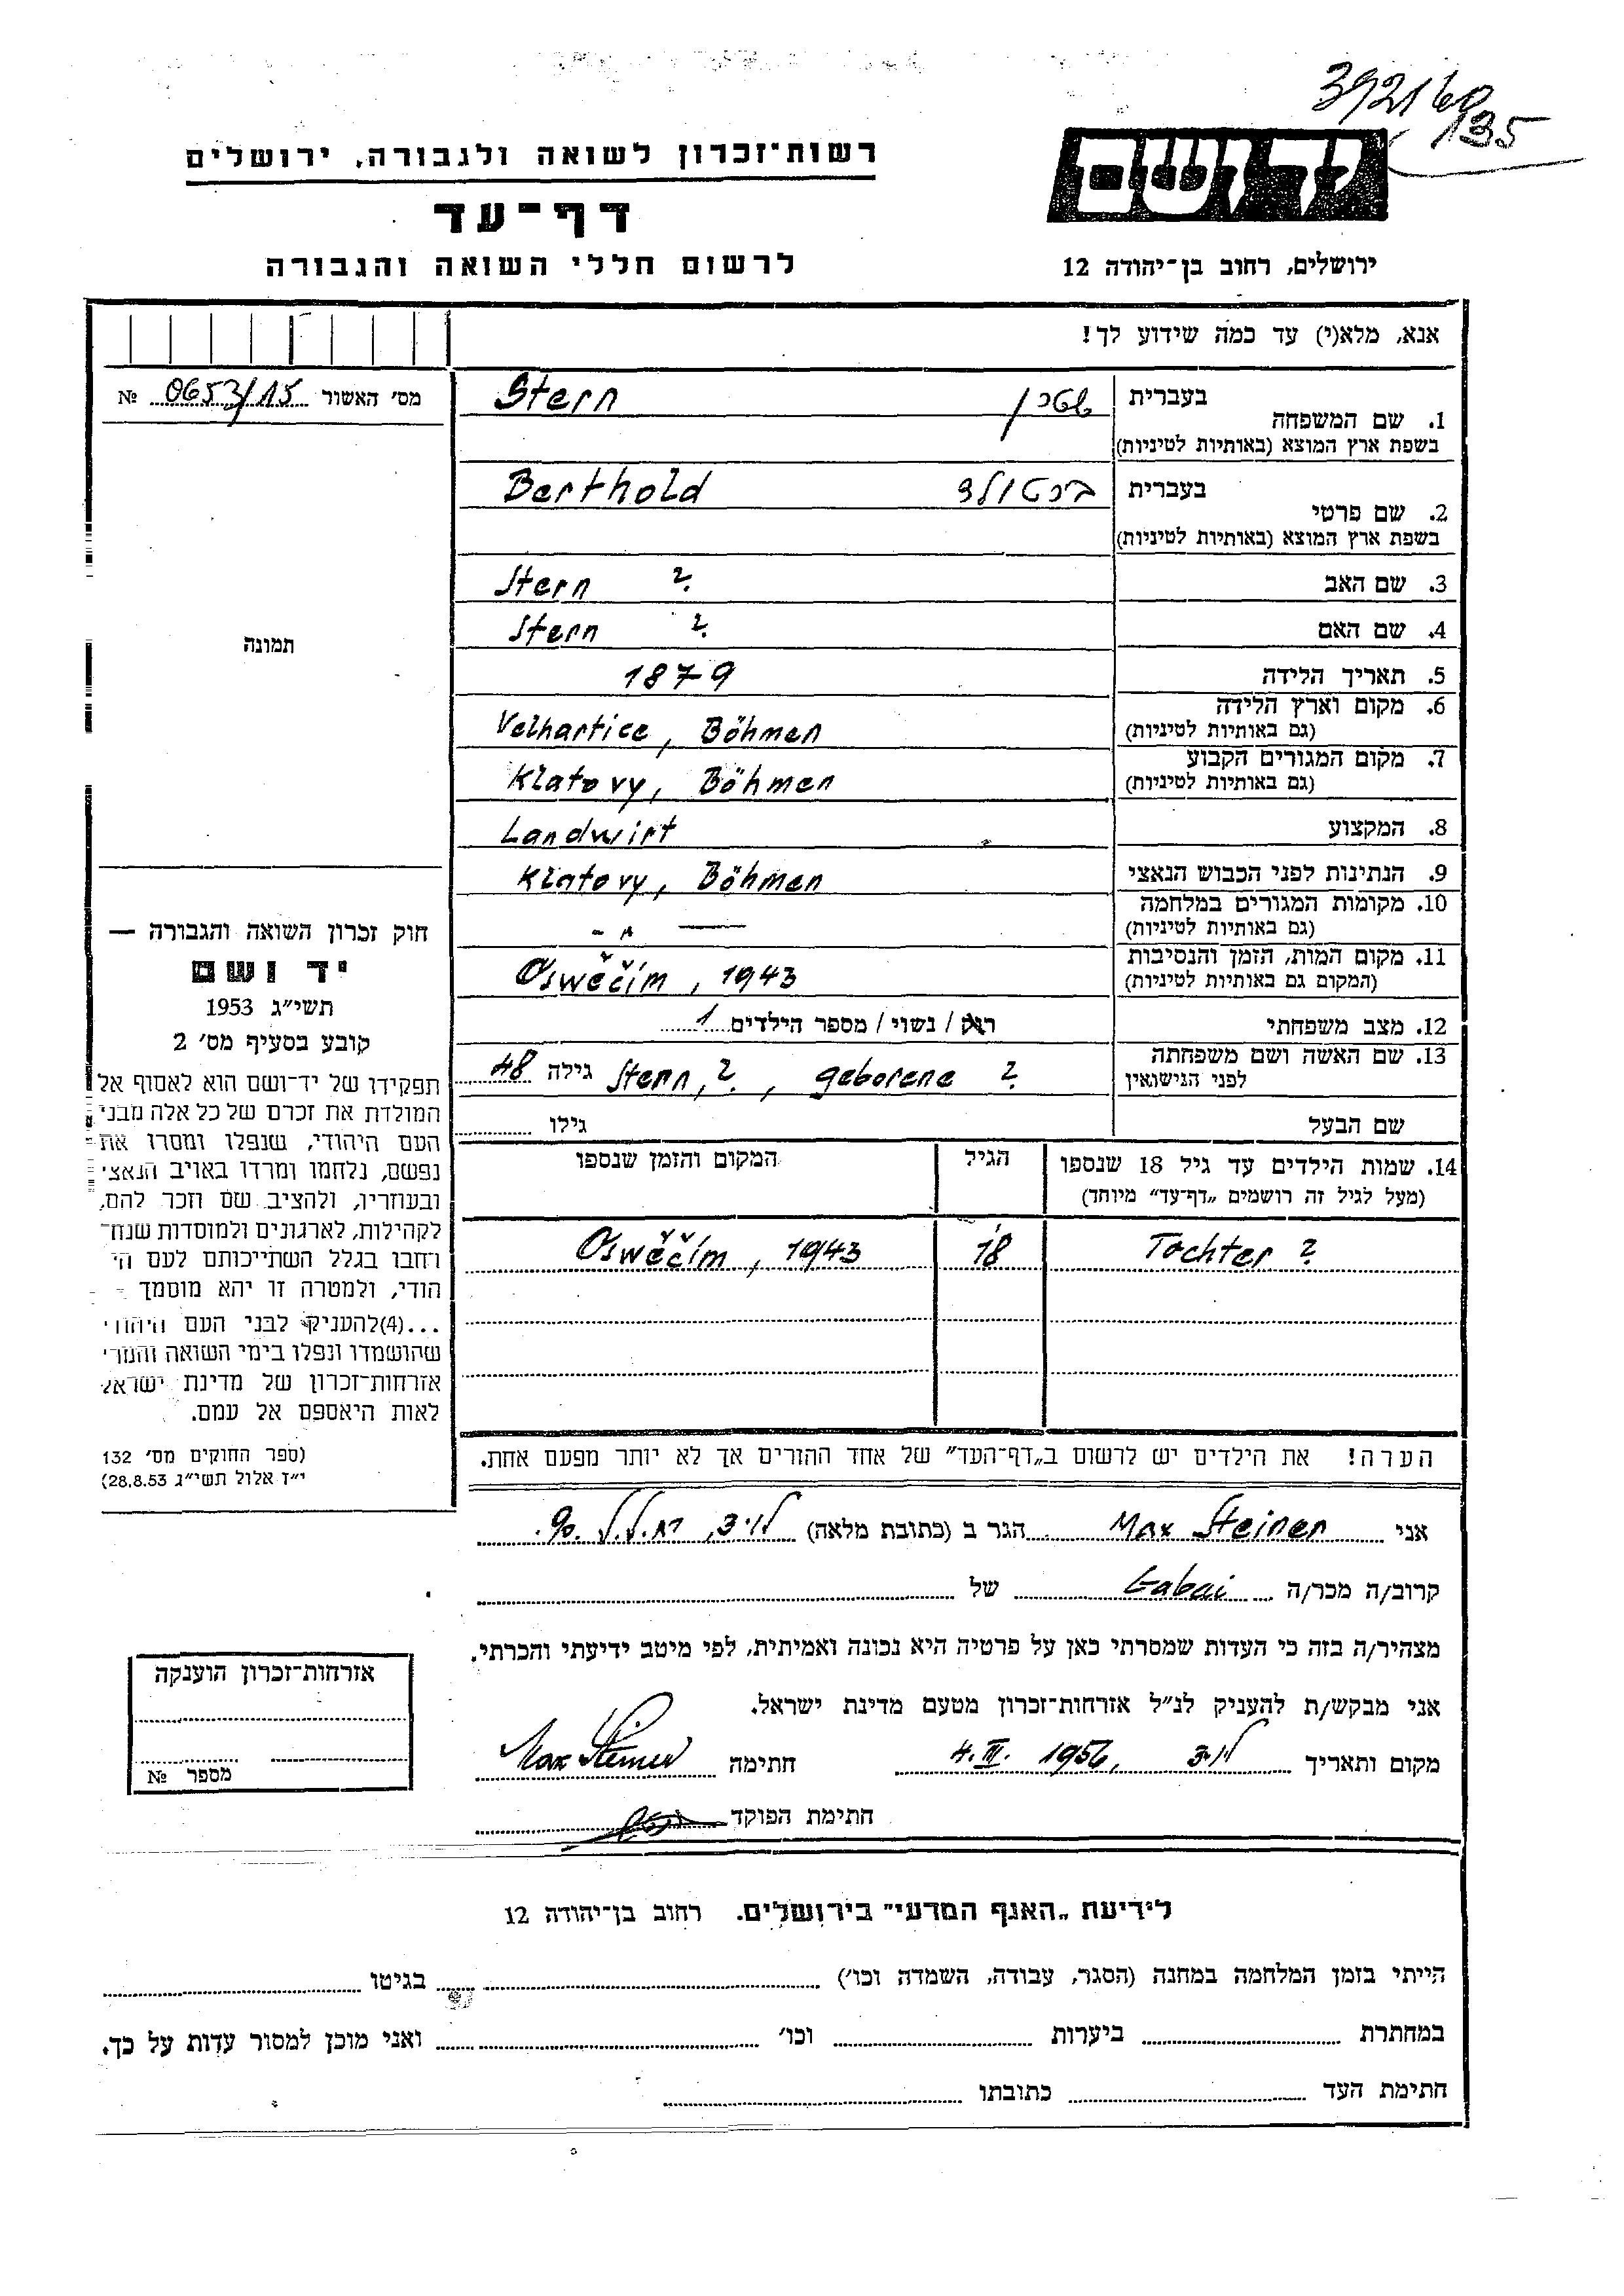 392160
135
ידושם
רשות־זכרון לשואה ולגבורה, ירושלים
דף־עד
לרשום חללי השואה והגבורה
ירושלים, רחוב בן־יהודה 12
אנא, מלא(י) עד כמה שידוע לך!
מס׳ האשור 0653/15 №
בעברית שטרן Stern
1. שם המשפחה
בשפת ארץ המוצא (באותיות לטיניות)
בעברית ברטולד Berthold
2. שם פרטי
בשפת ארץ המוצא (באותיות לטיניות)
3. שם האב Stern ?
4. שם האם Stern ?
5. תאריך הלידה 1879
6. מקום וארץ הלידה Velhartice, Böhmen
(גם באותיות לטיניות)
7. מקום המגורים הקבוע Klatovy, Böhmen
(גם באותיות לטיניות)
8. המקצוע Landwirt
9. הנתינות לפני הכבוש הנאצי Klatovy, Böhmen
10. מקומות המגורים במלחמה - " —
(גם באותיות לטיניות)
11. מקום המות, הזמן והנסיבות Oswěčím, 1943
(המקום גם באותיות לטיניות)
12. מצב משפחתי רוק / נשוי / מספר הילדים 1
13. שם האשה ושם משפחתה Stern, ?, geborene ? גילה 48
לפני הנישואין
שם הבעל גילו
14. שמות הילדים עד גיל 18 שנספו הגיל המקום והזמן שנספו
(מעל לגיל זה רושמים „דף־עד” מיוחד)
Tochter ? 18 Oswěčím, 1943
הערה! את הילדים יש לרשום ב„דף־העד” של אחד ההורים אך לא יותר מפעם אחת.
תמונה
חוק זכרון השואה והגבורה —
יד ושם
תשי״ג 1953
קובע בסעיף מס׳ 2
תפקידו של יד־ושם הוא לאסוף אל
המולדת את זכרם של כל אלה מבני
העם היהודי, שנפלו ומסרו את
נפשם, נלחמו ומרדו באויב הנאצי
ובעוזריו, ולהציב שם וזכר להם,
לקהילות, לארגונים ולמוסדות שנח־
רובו בגלל השתייכותם לעם הי
הודי, ולמטרה זו יהא מוסמך —
...(4)להעניק לבני העם היהודי
שהושמדו ונפלו בימי השואה והמרי
אזרחות־זכרון של מדינת ישראל
לאות היאספם אל עמם.
(ספר החוקים מס׳ 132
י״ז אלול תשי״ג 28.8.53)
אני Max Steiner הגר ב (כתובת מלאה) לוד, 90
קרוב/ה מכר/ה Gabai של
מצהיר/ה בזה כי העדות שמסרתי כאן על פרטיה היא נכונה ואמיתית, לפי מיטב ידיעתי והכרתי.
אני מבקש/ת להעניק לנ״ל אזרחות־זכרון מטעם מדינת ישראל.
מקום ותאריך לוד 4. III. 1956, חתימה Max Steiner
חתימת הפוקד
אזרחות־זכרון הוענקה
מספר №
לידיעת „האגף המדעי” בירושלים. רחוב בן־יהודה 12
הייתי בזמן המלחמה במחנה (הסגר, עבודה, השמדה וכו׳) בגיטו
במחתרת ביערות וכו׳ ואני מוכן למסור עדות על כך.
חתימת העד כתובתו